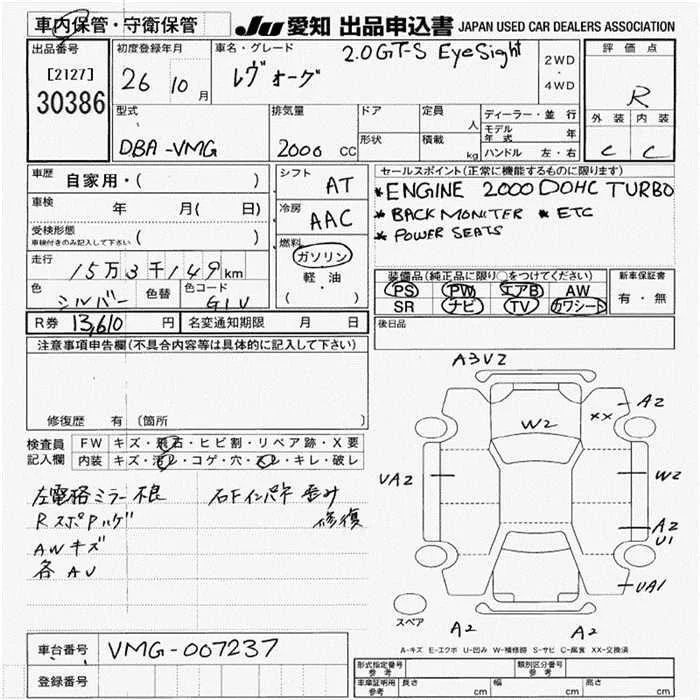 車内保管・守衛保管 JU 愛知 出品申込書 JAPAN USED CAR DEALERS ASSOCIATION
出品番号 初度登録年月 車名・グレード 2.0GT-S EyeSight 評価点
[2127] 26 10月 レヴォーグ 2WD・4WD R
30386 外装 内装
型式 排気量 ドア 定員 人 ディーラー・並行
モデル年式 年
DBA-VMG 2000 CC 形状 積載 kg ハンドル 左・右 C C
車歴 自家用・( ) シフト AT セールスポイント(正常に機能するものに限ります)
*ENGINE 2000 DOHC TURBO
車検 年 月( 日) 冷房 AAC *BACK MONITER *ETC
受検形態 車検付きのみ記入して下さい ( ) *POWER SEATS
走行 15万3千149km 燃料 ガソリン 軽・油 ( )
装備品(純正品に限り○をつけてください) 新車保証書
PS PW エアB AW 有・無
色 シルバー 色替 色コード G1U SR ナビ TV カワシート
R券 13,610 円 名変通知期限 月 日 後日品
注意事項申告欄(不具合内容等は具体的に記入して下さい)
修復歴 有 (箇所 )
検査員記入欄 FW キズ・飛石・ヒビ割・リペア跡・X要
内装 キズ・汚レ・コゲ・穴・スレ・キレ・破レ
左電格ミラー不良
修復
AWキズ
各AU
A3V2
W2
XX
A2
UA2
W2
A2
U1
UA1
A2
A2
スペア
A-キズ E-エクボ U-凹み W-補修跡 S-サビ C-腐食 XX-交換済
車台番号 VMG-007237
登録番号
形式指定番号 参考 類別区分番号 参考
車庫証明用 参考 長さ cm 幅 cm 高さ cm